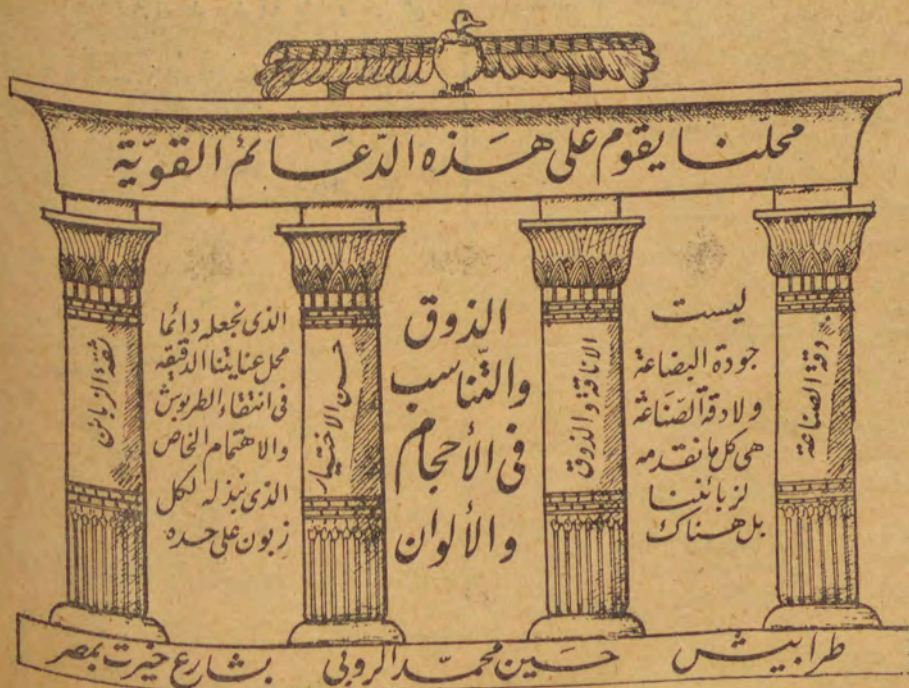 محلنا يقوم على هذه الدعائم القوية
دقة الصناعة
ليست
جودة البضاعة
ولا دقة الصناعة
هي كل ما نقدمه
لزبائننا
بل هناك
الاناقة والذوق
الذوق
والتناسب
في الأحجام
والألوان
حسن الاختيار
الذى نجعله دائما
محل عنايتنا الدقيقه
فى انتقاء الطربوش
والاهتمام الخاص
الذى نبذله لكل
زبون على حده
ثقة الزبائن
طرابيش حسين محمد الروبى بشارع خيرت بمصر